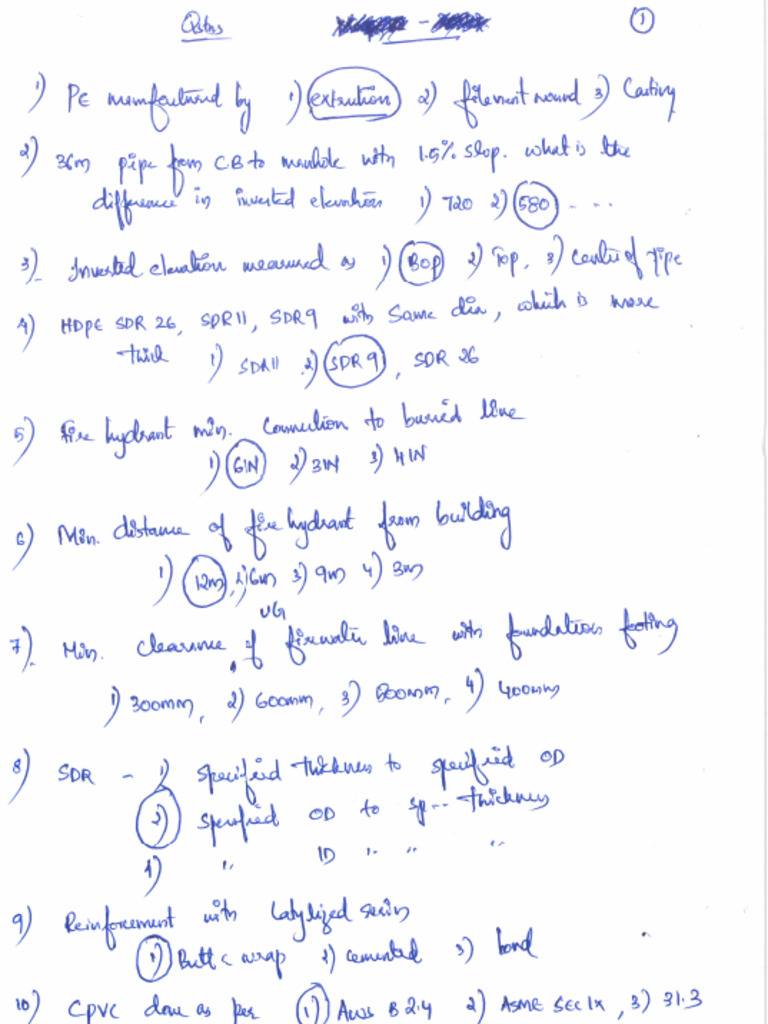 Qstns ①
1) PE manufactured by 1) extrution 2) filement wound 3) Casting
2) 36m pipe from CB to manhole with 1.5% slop. what is the
difference in inverted elevations 1) 720 2) 580 - ...
3) Inverted elevation measured as 1) BOP 2) Top, 3) Center of pipe
4) HDPE SDR 26, SDR11, SDR9 with Same dia, which is more
thick 1) SDR11 2) SDR9, SDR 26
5) Fire hydrant min. Connection to buried line
1) 6IN 2) 3IN 3) 4IN
6) Min. distance of fire hydrant from building
1) 12m, 2) 6m 3) 9m 4) 3m
7) Min. clearance of UG firewater line with foundation footing
1) 300mm, 2) 600mm, 3) 800mm, 4) 400mm
8) SDR - 1) specified thickness to specified OD
2) specified OD to sp-- thickness
4) " ID " " "
9) Reinforcement with
1) Butt & wrap 2) cemented 3) bond
10) CPVC done as per 1) AWS B 2.4 2) ASME SEC IX, 3) 31.3